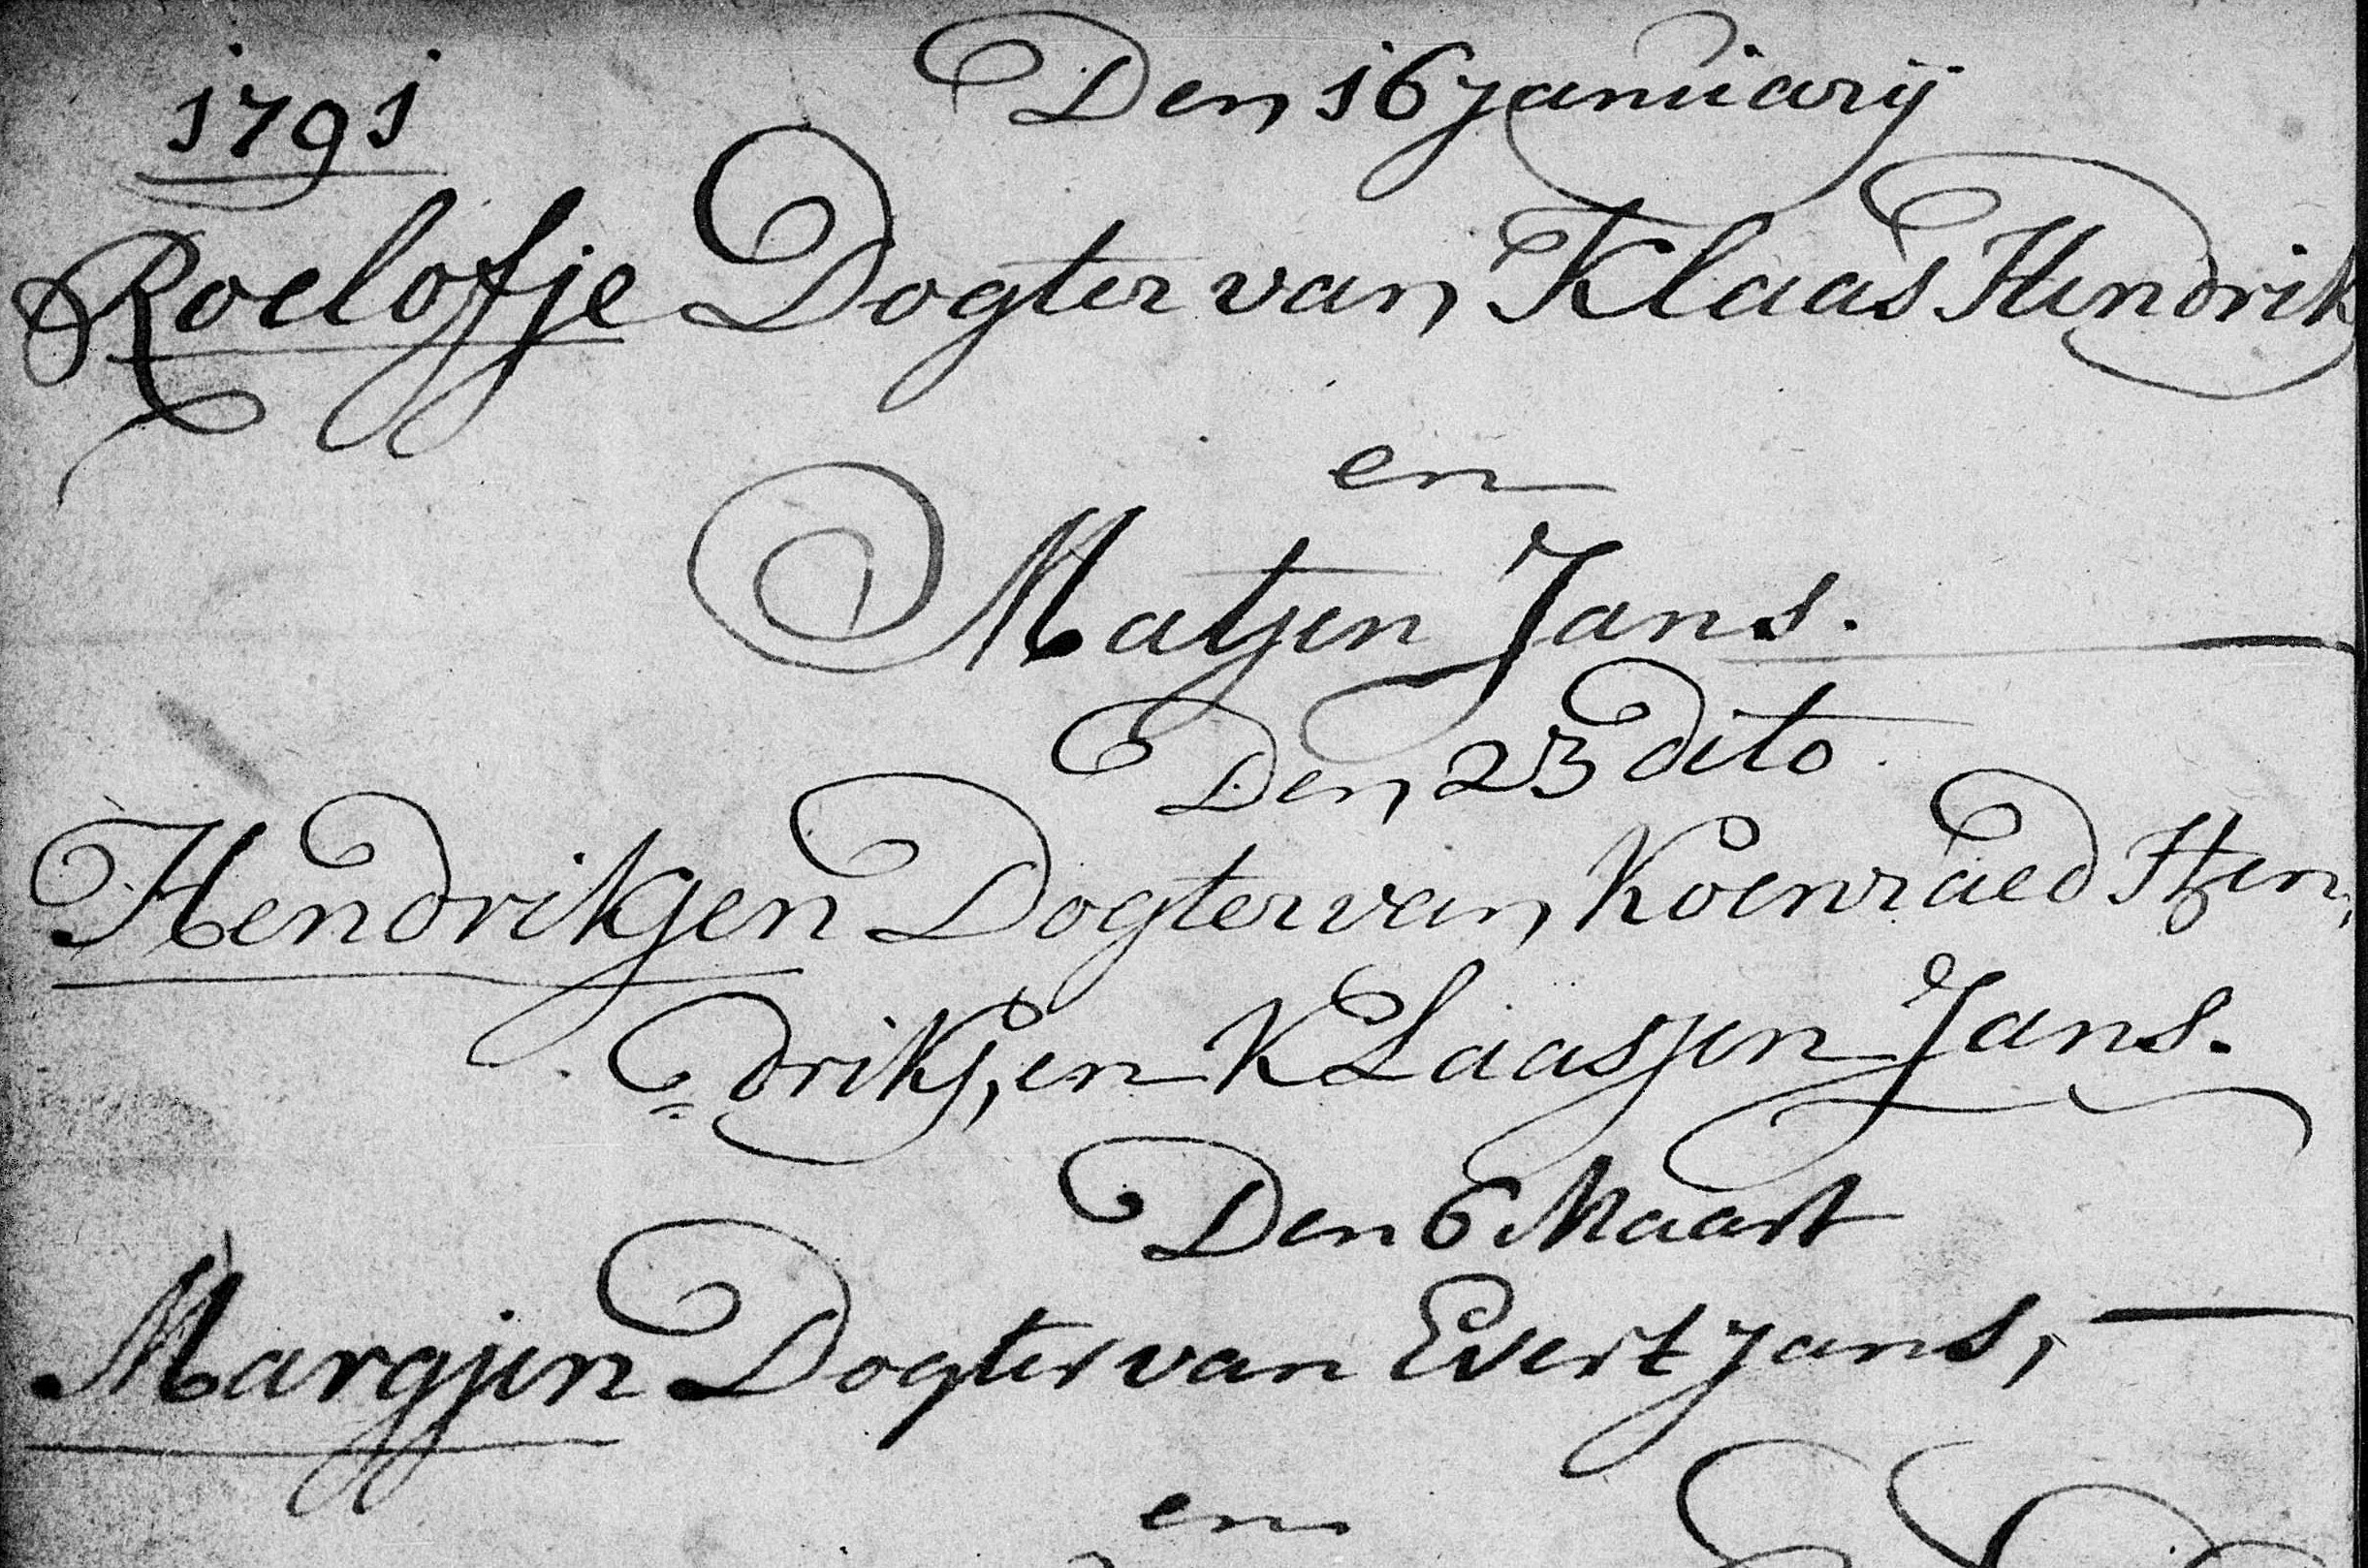 1791 Den 16 january
Roelofje Dogter van Klaas Hendrik
en
Matjen Jans.
Den 23 dito
Hendrikjen Dogter van Koenraed Hen,
=driks, en Klaasjen Jans.
Den 6 Maart
Margjen Dogter van Evert Jans,
en